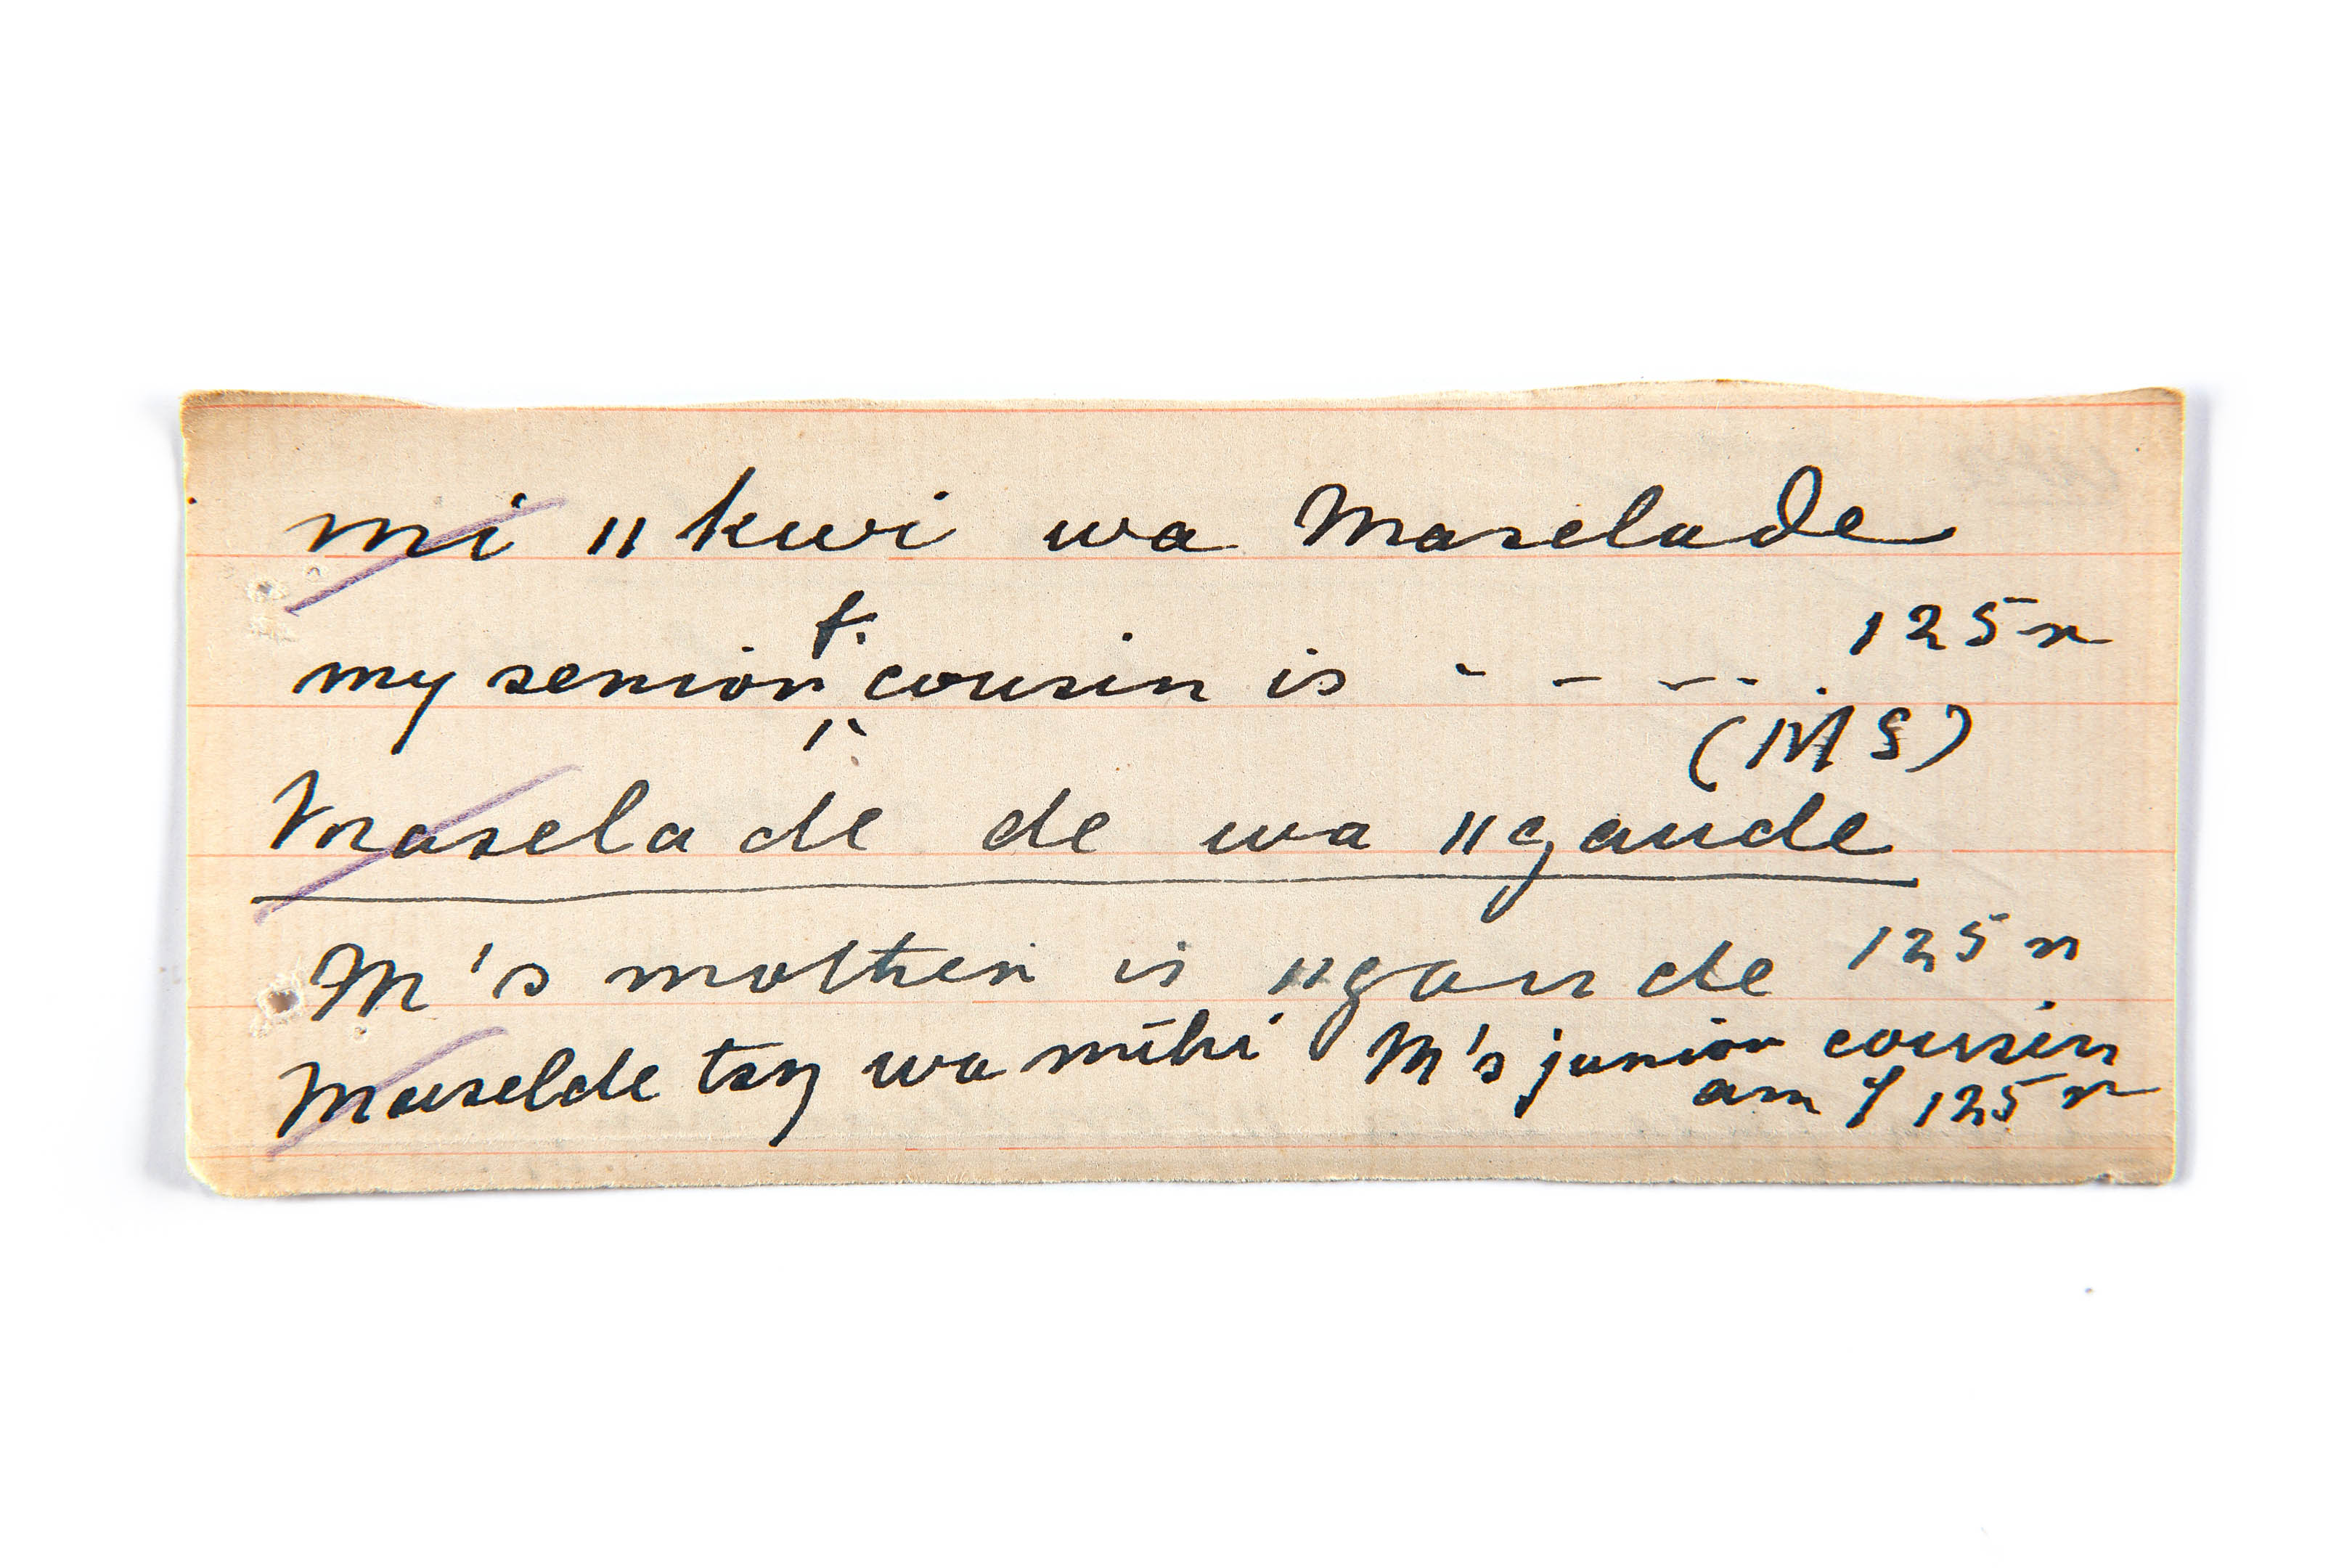 mi ǁkwi wa Maselade
125n
my senior f. cousin is - - - - .
(MS)
Maselade de wa ǁgaude
M's mother is ǁgaude 125n
Maselde tsŋ wa mihi M's junior cousin
am 125n